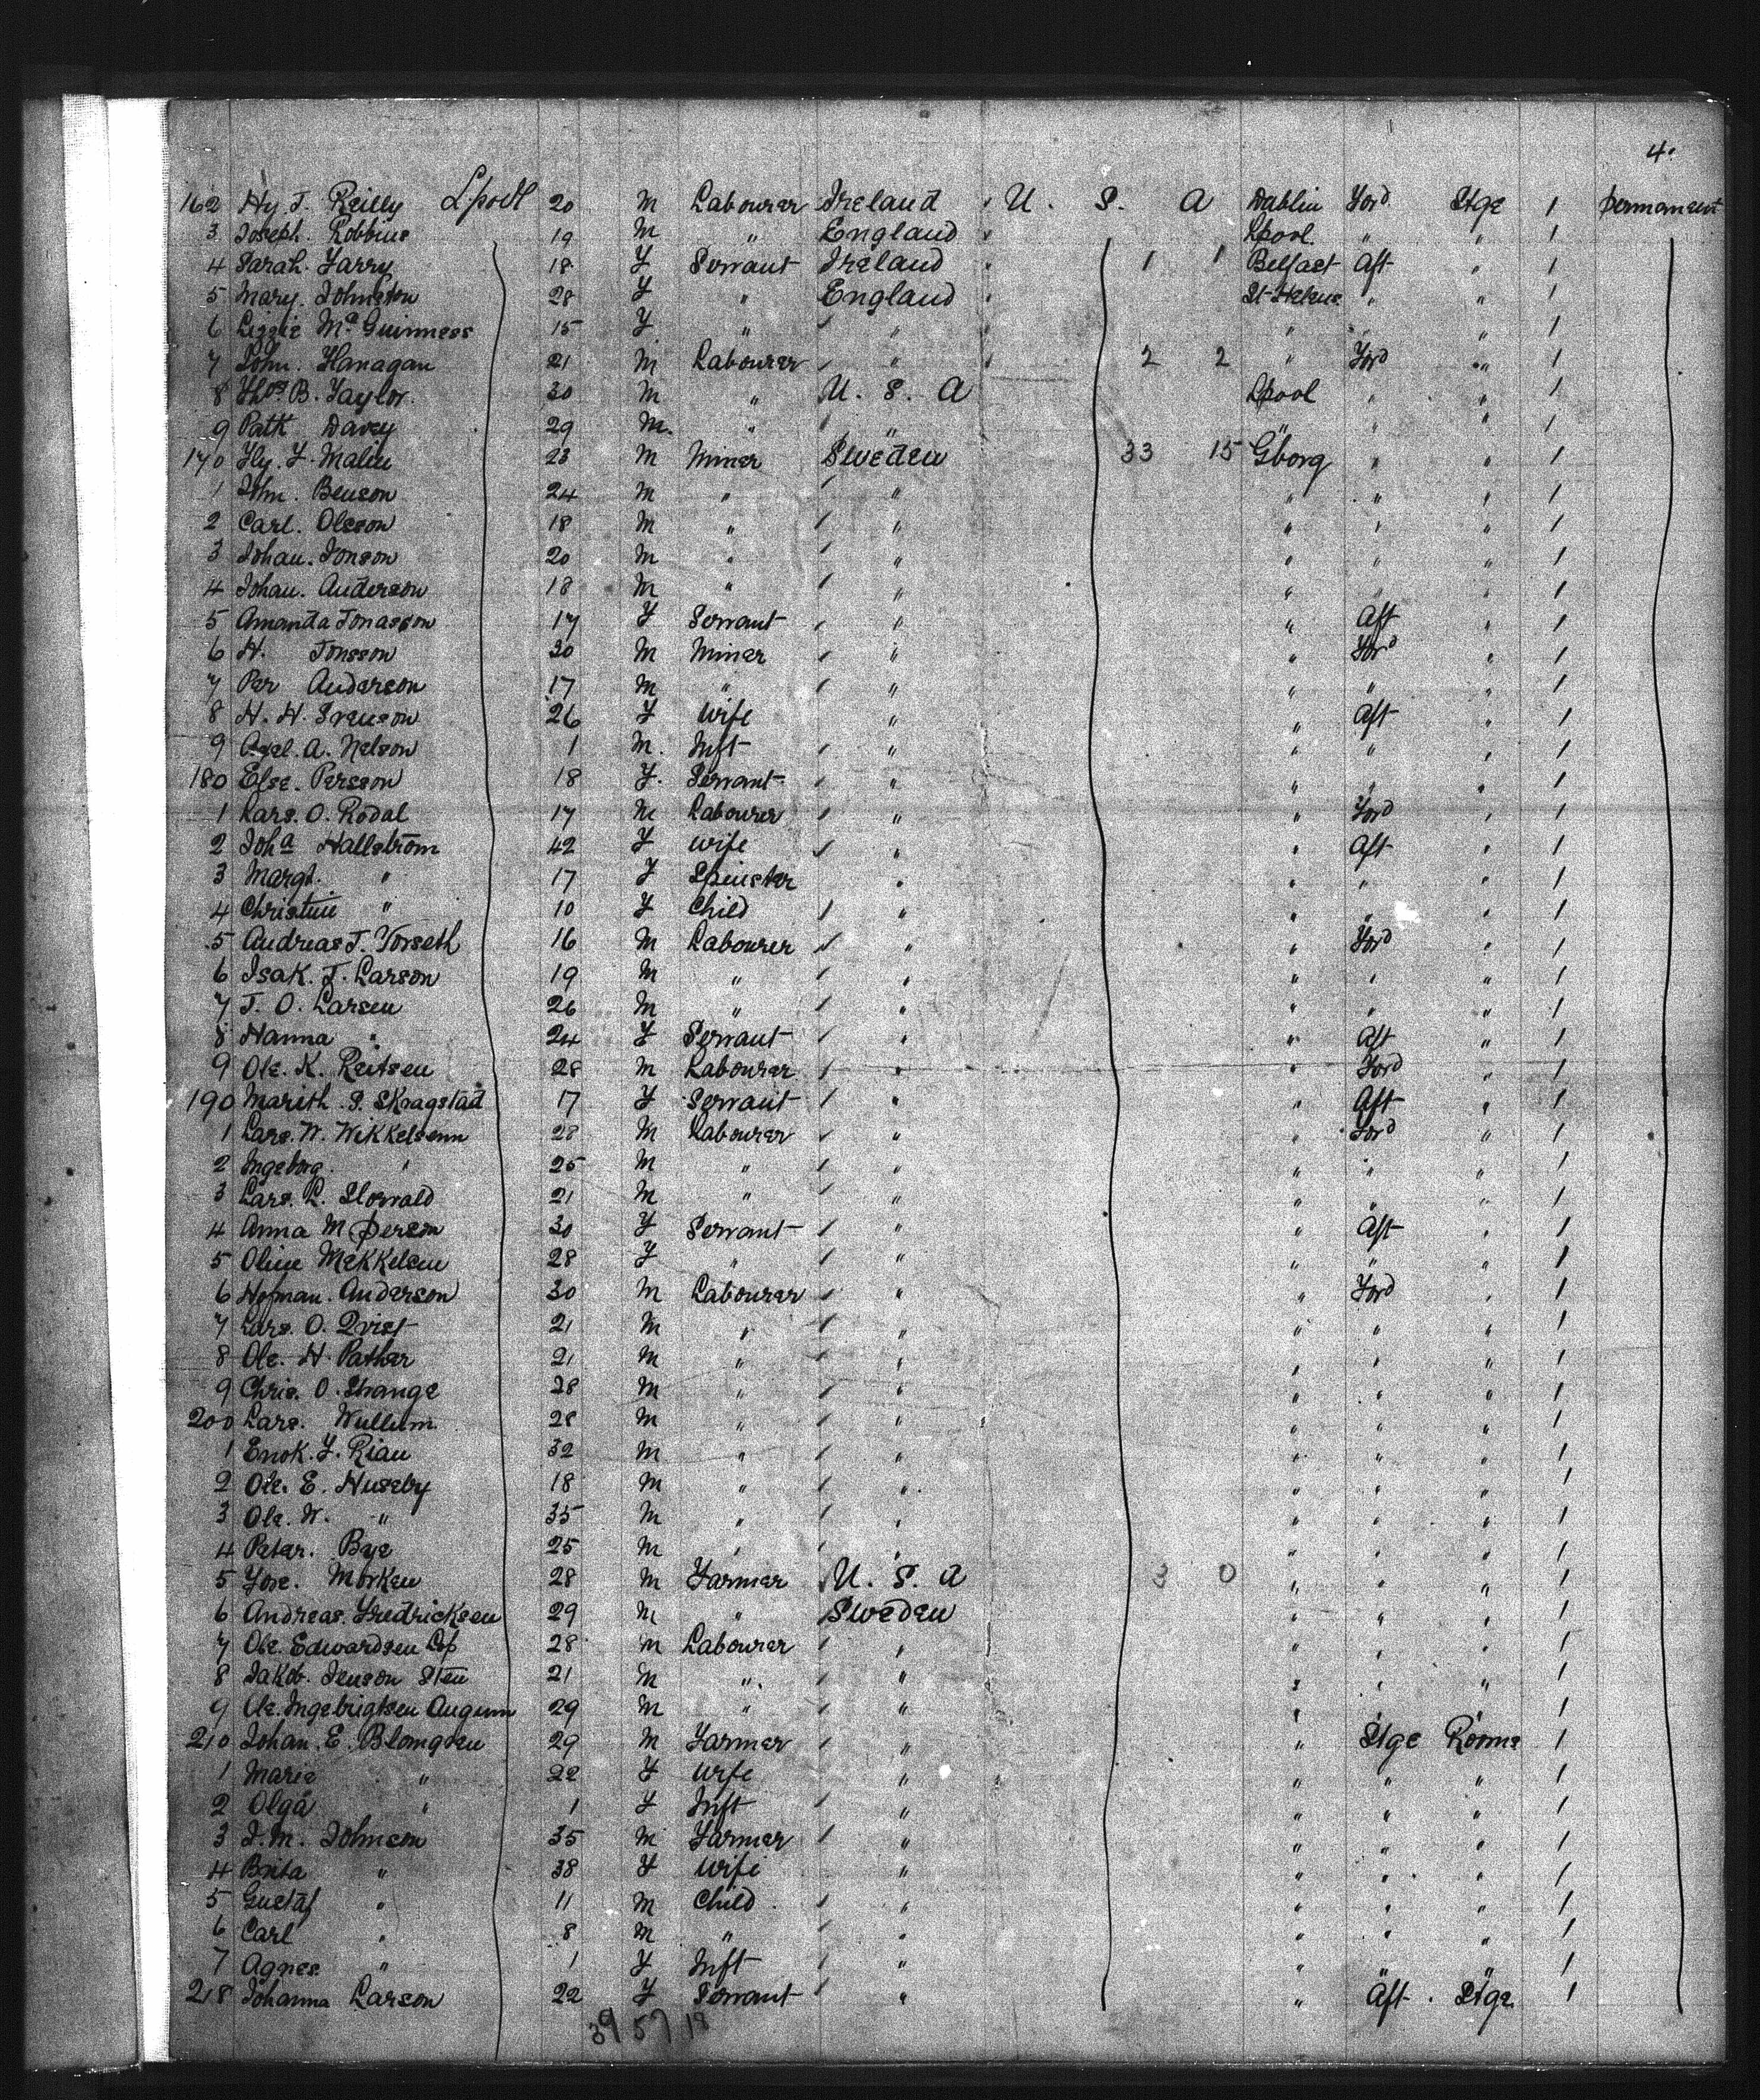 4.
162 Hy. J. Reilly Lpool 20 M Labourer Ireland U. S. A Dublin Ford Stge 1 permanent
3 Joseph. Robbins 19 M " England Lpool. " " 1
4 Sarah. Farry 18 F Servant Ireland 1 1 Belfast Aft " 1
5 Mary. Johnston 28 F " England St Helens " " 1
6 Lizzie Mc Guinness 15 F " " " " " 1
7 John. Flanagan 21 M Labourer " 2 2 " Ford " 1
8 Thos B. Taylor. 30 M " U. S. A Lpool " " 1
9 Patk Davey 29 M. " " " " " 1
170 Hy. F. Malin 23 M Miner Sweden 33 15 Gborg " " 1
1 John. Benson 24 M " " " " " 1
2 Carl. Olsson 18 M " " " " " 1
3 Johan. Jonson 20 M " " " " " 1
4 Johan. Anderson 18 M " " " " " 1
5 Amanda Jonasson 17 F Servant " " Aft " 1
6 H. Jonsson 30 M Miner " " Ford " 1
7 Per Anderson 17 M " " " " " 1
8 H. H. Svenson 26 F Wife " " Aft " 1
9 Axel. A. Nelson 1 M. Inft " " " " 1
180 Else. Persson 18 F. Servant " " " " 1
1 Lars. O. Rodal 17 M Labourer " " Ford " 1
2 Joha Hallström 42 F Wife " " Aft " 1
3 Margt. " 17 F Spinster " " " " 1
4 Christine " 10 F Child " " " " 1
5 Andreas J. Torseth 16 M Labourer " " Ford " 1
6 Isak. J. Larson 19 M " " " " " 1
7 J. O. Larsen 26 M " " " " " 1
8 Hanna " 24 F Servant " " Aft " 1
9 Ole. K. Reitsen 28 M Labourer " " Ford " 1
190 Marith. S. Skragstad 17 F Servant " " Aft " 1
1 Lars. W. Wikkelsenn 28 M Labourer " " Ford " 1
2 Ingeborg. " 25 M " " " " " 1
3 Lars. L. Slorvald 21 M " " " " " 1
4 Anna M Person 30 F Servant " " Aft " 1
5 Oline Mekkelsen 28 F " " " " " 1
6 Hofman. Anderson 30 M Labourer " " Ford " 1
7 Lars. O. Qvist 21 M " " " " " 1
8 Ole. H. Pather 21 M " " " " " 1
9 Chris. O. Strange 28 M " " " " " 1
200 Lars. Wullum 28 M " " " " " 1
1 Enok. F. Rian 32 M " " " " " 1
2 Ole. E. Huseby 18 M " " " " " 1
3 Ole. N. " 35 M " " " " " 1
4 Peter. Bye 25 M " " " " " 1
5 Morken 28 M Farmer U. S. A 3 0 " " " 1
6 Andreas. Fredricksen 29 M " Sweden " " " 1
7 Ole. Edwardsen 28 M Labourer " " " " 1
8 Jakob. Jenson Sten 21 M " " " " " 1
9 Ole. Ingebrigtsen Augunn 29 M " " " " " 1
210 Johan. E. Blomgren 29 M Farmer " " Stge Rooms 1
1 Marie " 22 F Wife " " " " 1
2 Olga " 1 F Inft " " " " 1
3 J. M. Johnson 35 M Farmer " " " " 1
4 Brita " 38 F Wife " " " " 1
5 Gustaf " 11 M Child " " " " 1
6 Carl " 8 M " " " " " 1
7 Agnes " 1 F Inft " " " " 1
218 Johanna Larson 22 F Servant " " Aft. Stge 1
39 57 18